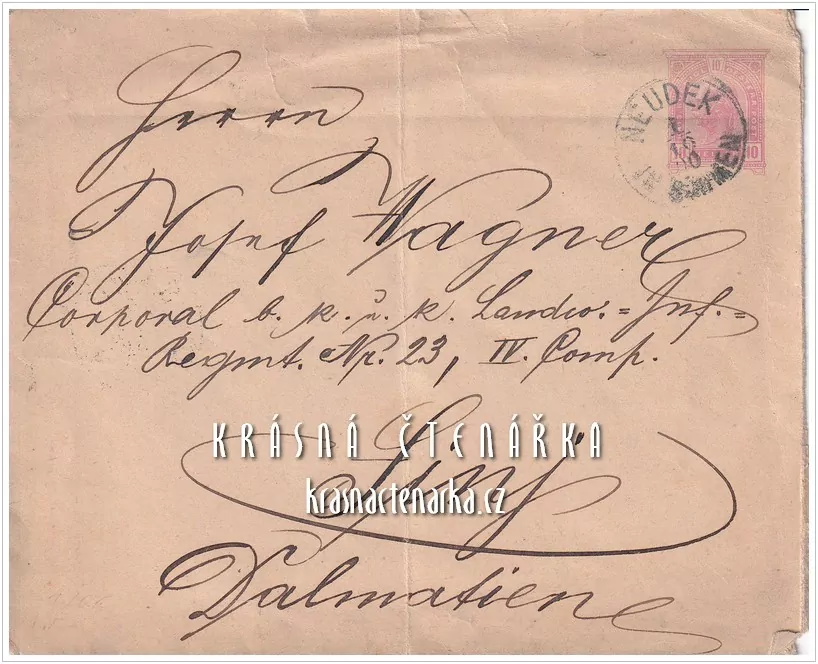 10
10
NEUDEK
IN BÖHMEN
Herrn
Josef Wagner
Corporal b. k. u. k. Landw.=Inf.=
Regmt. Nr. 23, IV. Comp.
KRÁSNÁ ČTENÁŘKA
Sinj
krasnactenarka.cz
Dalmatien